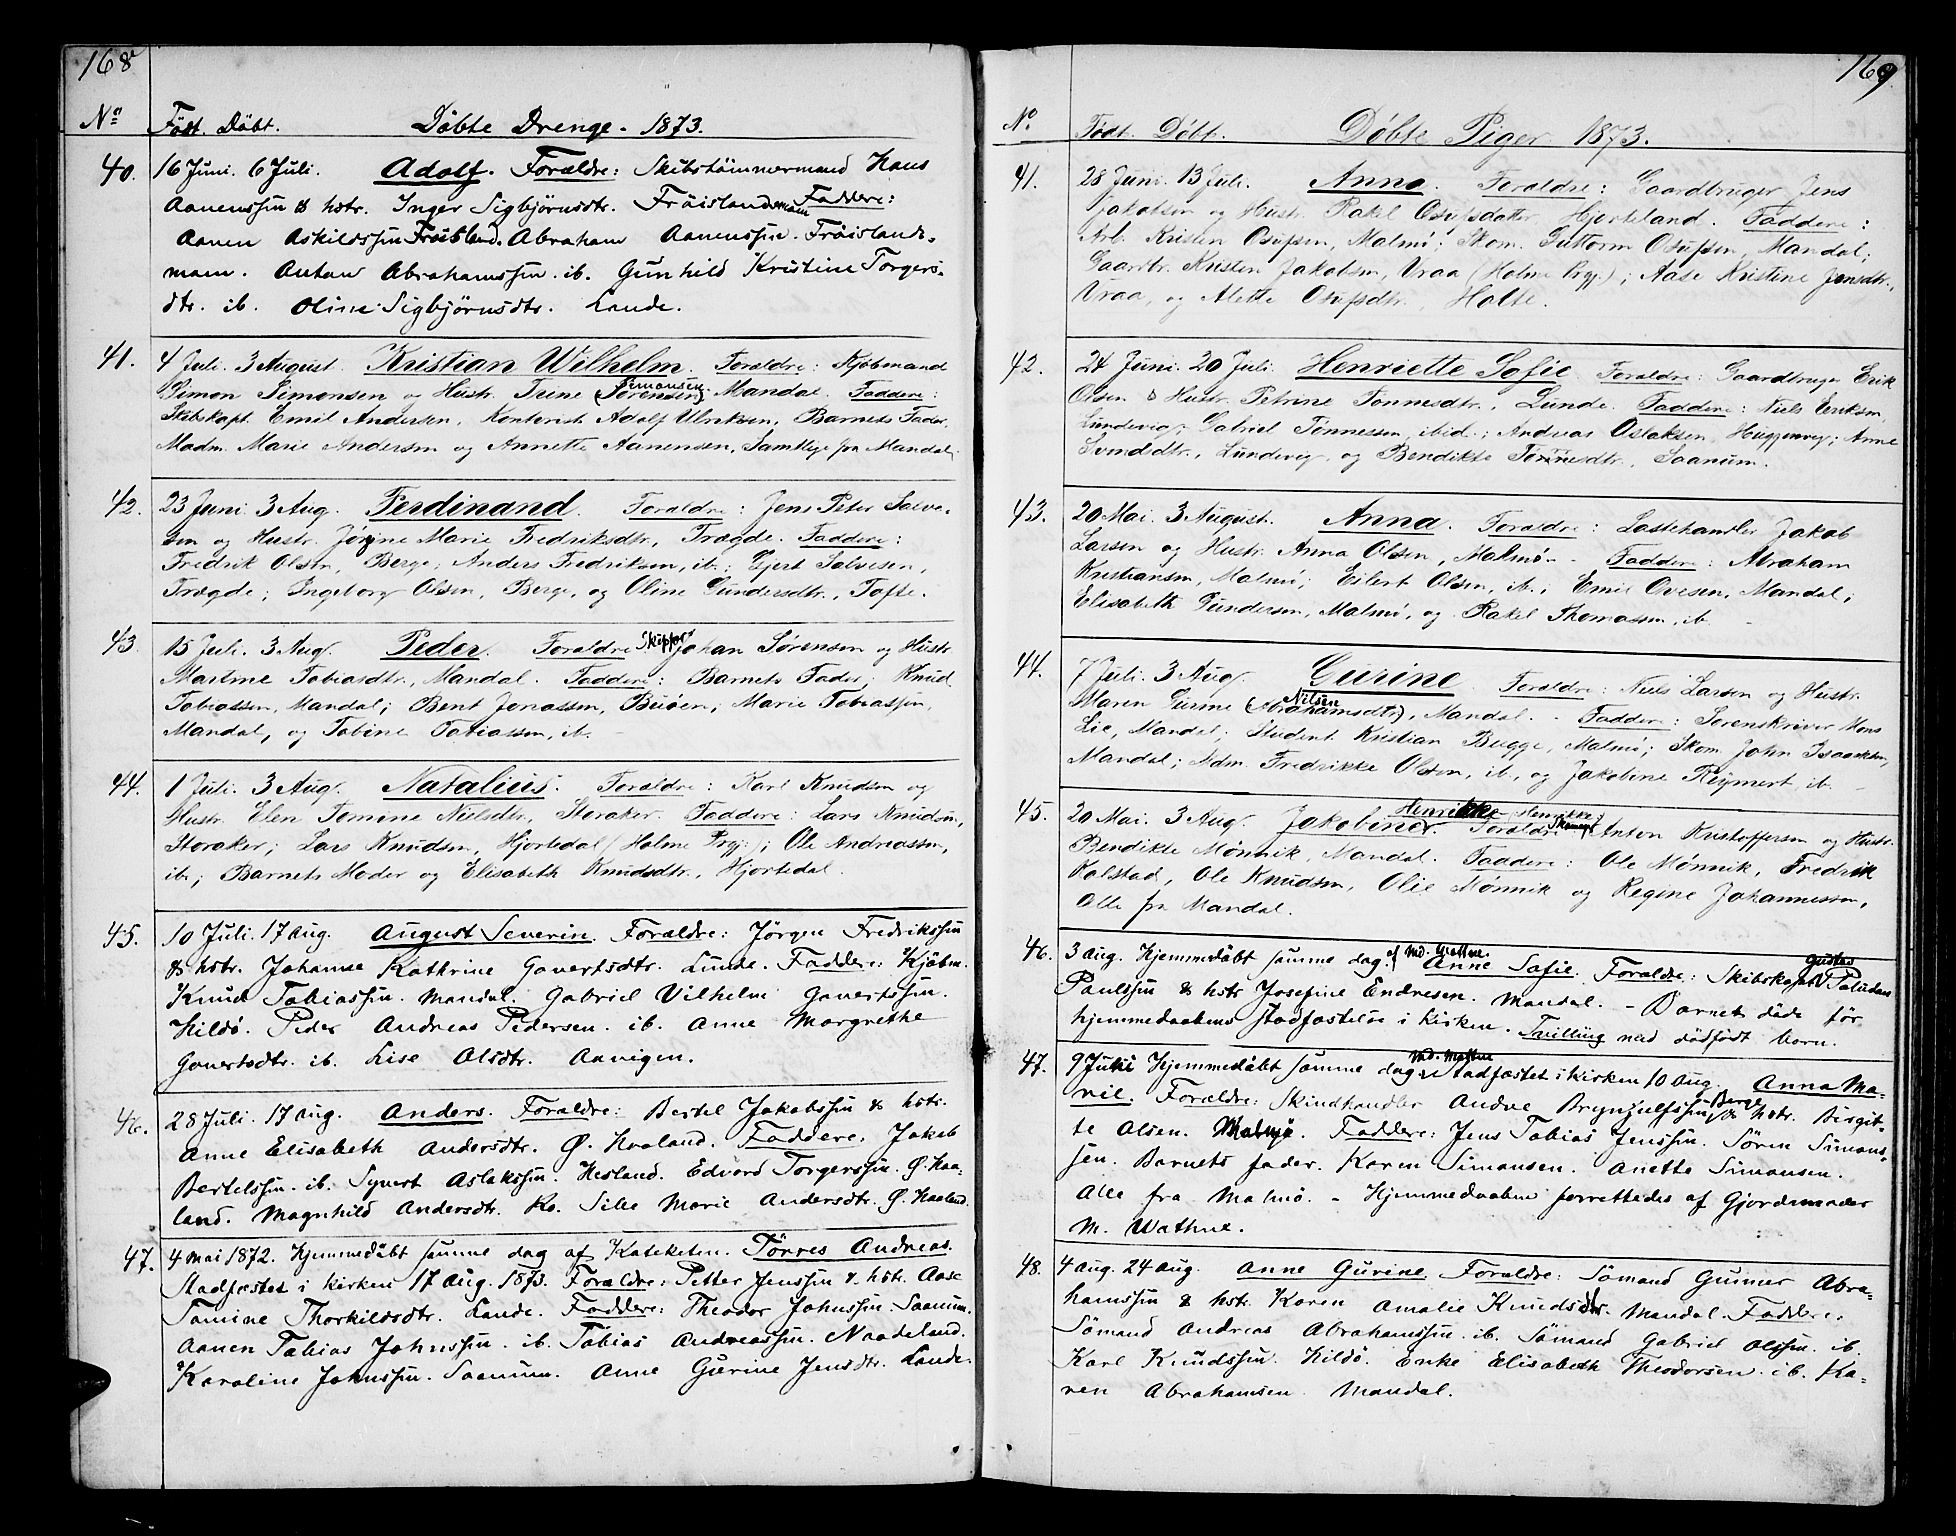 168
No Født. Døbt. Døbte Drenge. 1873.
40. 16 Juni. 6 Juli. Adolf. Forældre: Skibstømmermand Hans
Aanenssøn & hstr. Inger Sigbjørnsdtr. Frøislandsmam Faddere:
Aanen Askildssøn Frøisland. Abraham Aanenssøn. Frøislands-
mam. Antaw Abrahamssøn. ib. Gunhild Kristine Torgers-
dtr. ib. Oline Sigbjørnsdtr. Lande.
41. 4 Juli. 3 August. Kristian Wilhelm. Forældre: Kjøbmand
Simon Simonsen og Hustr. Trine (Sørensen) Simonsen. Mandal. Faddere:
Skibskapt. Emil Andersen, Kontorist Adolf Ulriksen, Barnets Fader,
Madm. Marie Andersen og Annette Aanensen, Samtlige fra Mandal.
42. 23 Juni. 3 Aug. Ferdinand. Forældre: Jens Peter Salve-
sen og Hustr. Jørgine Marie Fredriksdtr., Trægde. Faddere:
Fredrik Olsen, Berge; Anders Fredriksen, ib.; Gjert Salvesen,
Trægde; Ingeborg Olsen, Berge, og Oline Gundersdtr., Tofte.
43. 15 Juli. 3 Aug. Peder. Forældre: Skipper Johan Sørensen og Hustr.
Martine Tobiasdtr., Mandal. Faddere: Barnets Fader; Knud
Tobiassen, Mandal; Bent Jonassen, Buøen; Marie Tobiassen,
Mandal, og Tobine Tobiassen, ib.
44. 1 Juli. 3 Aug. Natalius. Forældre: Karl Knudsen og
Hustr. Elen Tomine Nielsdtr., Storaker. Faddere: Lars Knudsen,
Storaker; Lars Knudsen, Hjortedal (Holme Prgj.); Ole Andreassen,
ib.; Barnets Moder og Elisabeth Knudsdtr., Hjortedal.
45. 10 Juli. 17 Aug. August Severin. Forældre: Jørgen Fredrikssøn
& hstr. Johanne Kathrine Govertsdtr. Lunde. Faddere: Kjøbm.
Knud Tobiassøn. Mandal. Gabriel Vilhelm Govertssøn.
Hildö. Peder Andreas Pedersen. ib. Anne Margrethe
Govertsdtr. ib. Lise Olsdtr. Aavigen.
46. 28 Juli. 17 Aug. Anders. Forældre: Bertel Jakobssøn & hstr.
Anne Elisabeth Andersdtr. Ø. Haaland. Faddere: Jakob
Bertelssøn. ib. Syvert Aslakssøn. Hesland. Edvard Torgerssøn. Ø. Haa-
land. Magnhild Andersdtr. Ro. Silie Marie Andersdtr. Ø. Haaland.
47. 4 Mai 1872. Hjemmedøbt samme dag af Kateketen. Törres Andreas.
Stadfæstet i kirken 17 Aug. 1873. Forældre: Petter Jenssøn & hstr. Aase
Tomine Thorkildsdtr. Lande. Faddere: Theodor Johnssøn. Saanum.
Aanen Tobias Johnssøn. ib. Tobias Andreassøn. Naadeland.
Karoline Johnssøn. Saanum. Anne Gurine Jensdtr. Lande.
169.
No Født. Døbt. Døbte Piger 1873.
41. 28 Juni. 13 Juli. Anna. Forældre: Gaardbruger Jens
Jakobsen og Hustr. Rakel Osufsdatter, Hjorteland. Faddere:
Arb. Kristen Osufsen, Malmø; Skom. Guttorm Osufsen, Mandal;
Gaardbr. Kristen Jakobsen, Vraa (Holme Prgj.); Aase Kristine Jensdtr.,
Vraa, og Alette Osufsdtr. Holte.
42. 24 Juni. 20 Juli. Henriette Sofie Forældre: Gaardbruger Erik
Olsen & Hustr. Petrine Tønnesdtr., Lunde. Faddere: Niels Eriksen,
Lundevig; Gabriel Tønnessen, ibid.; Andreas Oslaksen, ; Anne
Svendsdtr., Lundevig, og Bendikte Tønnesdtr., Saanum.
43. 20 Mai. 3 August. Anna. Forældre: Lastehandler Jakob
Larsen og Hustr. Anna Olsen, Malmø. Faddere: Abraham
Kristiansen, Malmø; Eilert Olsen, ib.; Emil Ovesen, Mandal;
Elisabeth Gundersen, Malmø, og Rakel Thomassen, ib.
44. 7 Juli. 3 Aug. Gurine Forældre: Niels Larsen og Hustr.
Maren Gurine (Abrahamsdtr) Nilsen, Mandal. Faddere: Sorenskriver Mons
Lie, Mandal; Student Kristian Bugge, Malmø; Skom. John Isaaksen,
Mandal; Mdm. Fredrikke Olsen, ib., og Jakobine Reymert, ib.
45. 20 Mai. 3 Aug. Jakobine Henrikke. Forældre: Anton Kristoffersen og Hustr.
Bendikte Mønnik, Mandal. Faddere: Ole Mønnik, Fredrik
Kalstad, Ole Knudsen, Olie Mønnik og Regine Johannessen,
Alle fra Mandal.
46. 3 Aug. Hjemmedøbt samme dag af Anne Sofie. Forældre: Skibskapt. Gustav Paludan
Paulssøn & hstr Josefine Endresen. Mandal. - Barnet døde før
hjemmedaabens stadfæstelse i kirken. Tvilling med dødfødt barn.
47. 9 Juni Hjemmedøbt samme dag stadfæstet i kirken 10 Aug. Anna Ma-
vil. Forældre: Skindhandler Andre Brynjulfssøn Berge & hstr. Birgit-
te Olsen. Malmø. Faddere: Jens Tobias Jenssøn. Sören Simons-
sen. Barnets fader. Karen Simonsen. Anette Simonsen.
Alle fra Malmø. - Hjemmedaaben forrettedes af Gjordemoder
M. Wathne.
48. 4 Aug. 24 Aug. Anne Gurine. Forældre: Sömand Gumer Abra-
hamssøn & hstr. Karen Amalie Knudsdtr. Mandal. Faddere:
Sömand Andreas Abrahamssøn. ib. Sömand Gabriel Olssøn. ib.
Karl Knudssøn. Hildö. Enke Elisabeth Theodorsen. ib. Ka-
ren Abrahamsen. Mandal.